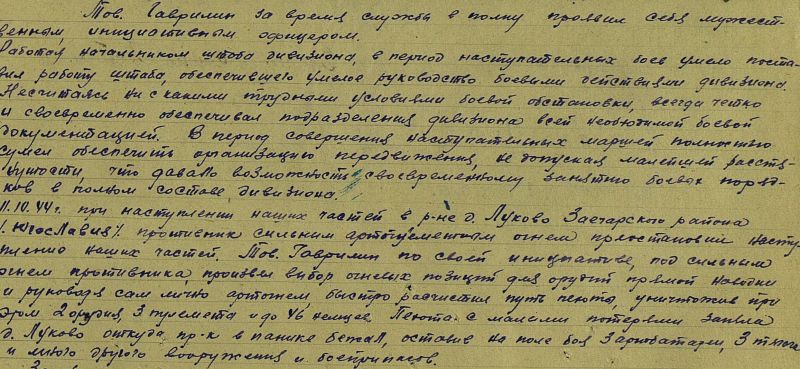 Тов. Гаврилин за время службы в полку проявил себя мужест-
венным, инициативным офицером.
Работая начальником штаба дивизиона, в период наступательных боев умело поста-
вил работу штаба, обеспечившего умелое руководство боевыми действиями дивизиона.
Несчитаясь ни с какими трудными условиями боевой обстановки, всегда четко
и своевременно обеспечивал подразделения дивизиона всей необходимой боевой
документацией. В период совершения наступательных маршей полностью
сумел обеспечить организацию передвижения, не допуская малейшей растя-
нутости, что давало возможность своевременному занятию боевых поряд-
ков в полном составе дивизиона.
11.10.44г. при наступлении наших частей в р-не д. Луково Заечарского района
/Югославия/. противник сильным артминометным огнем приостановил насту-
пление наших частей. Тов. Гаврилин по своей инициативе, под сильным
огнем противника, произвел выбор огневых позиций для орудий прямой наводки
и руководя сам лично артогнем, быстро расчистил путь пехоты, уничтожив при
этом 2 орудия, 3 пулемета и до 46 немцев. Пехота с малыми потерями заняла
д. Луково откуда пр-к в панике бежал, оставив на поле боя 3 артбатареи, 3 тягача
и много другого вооружения и боеприпасов.